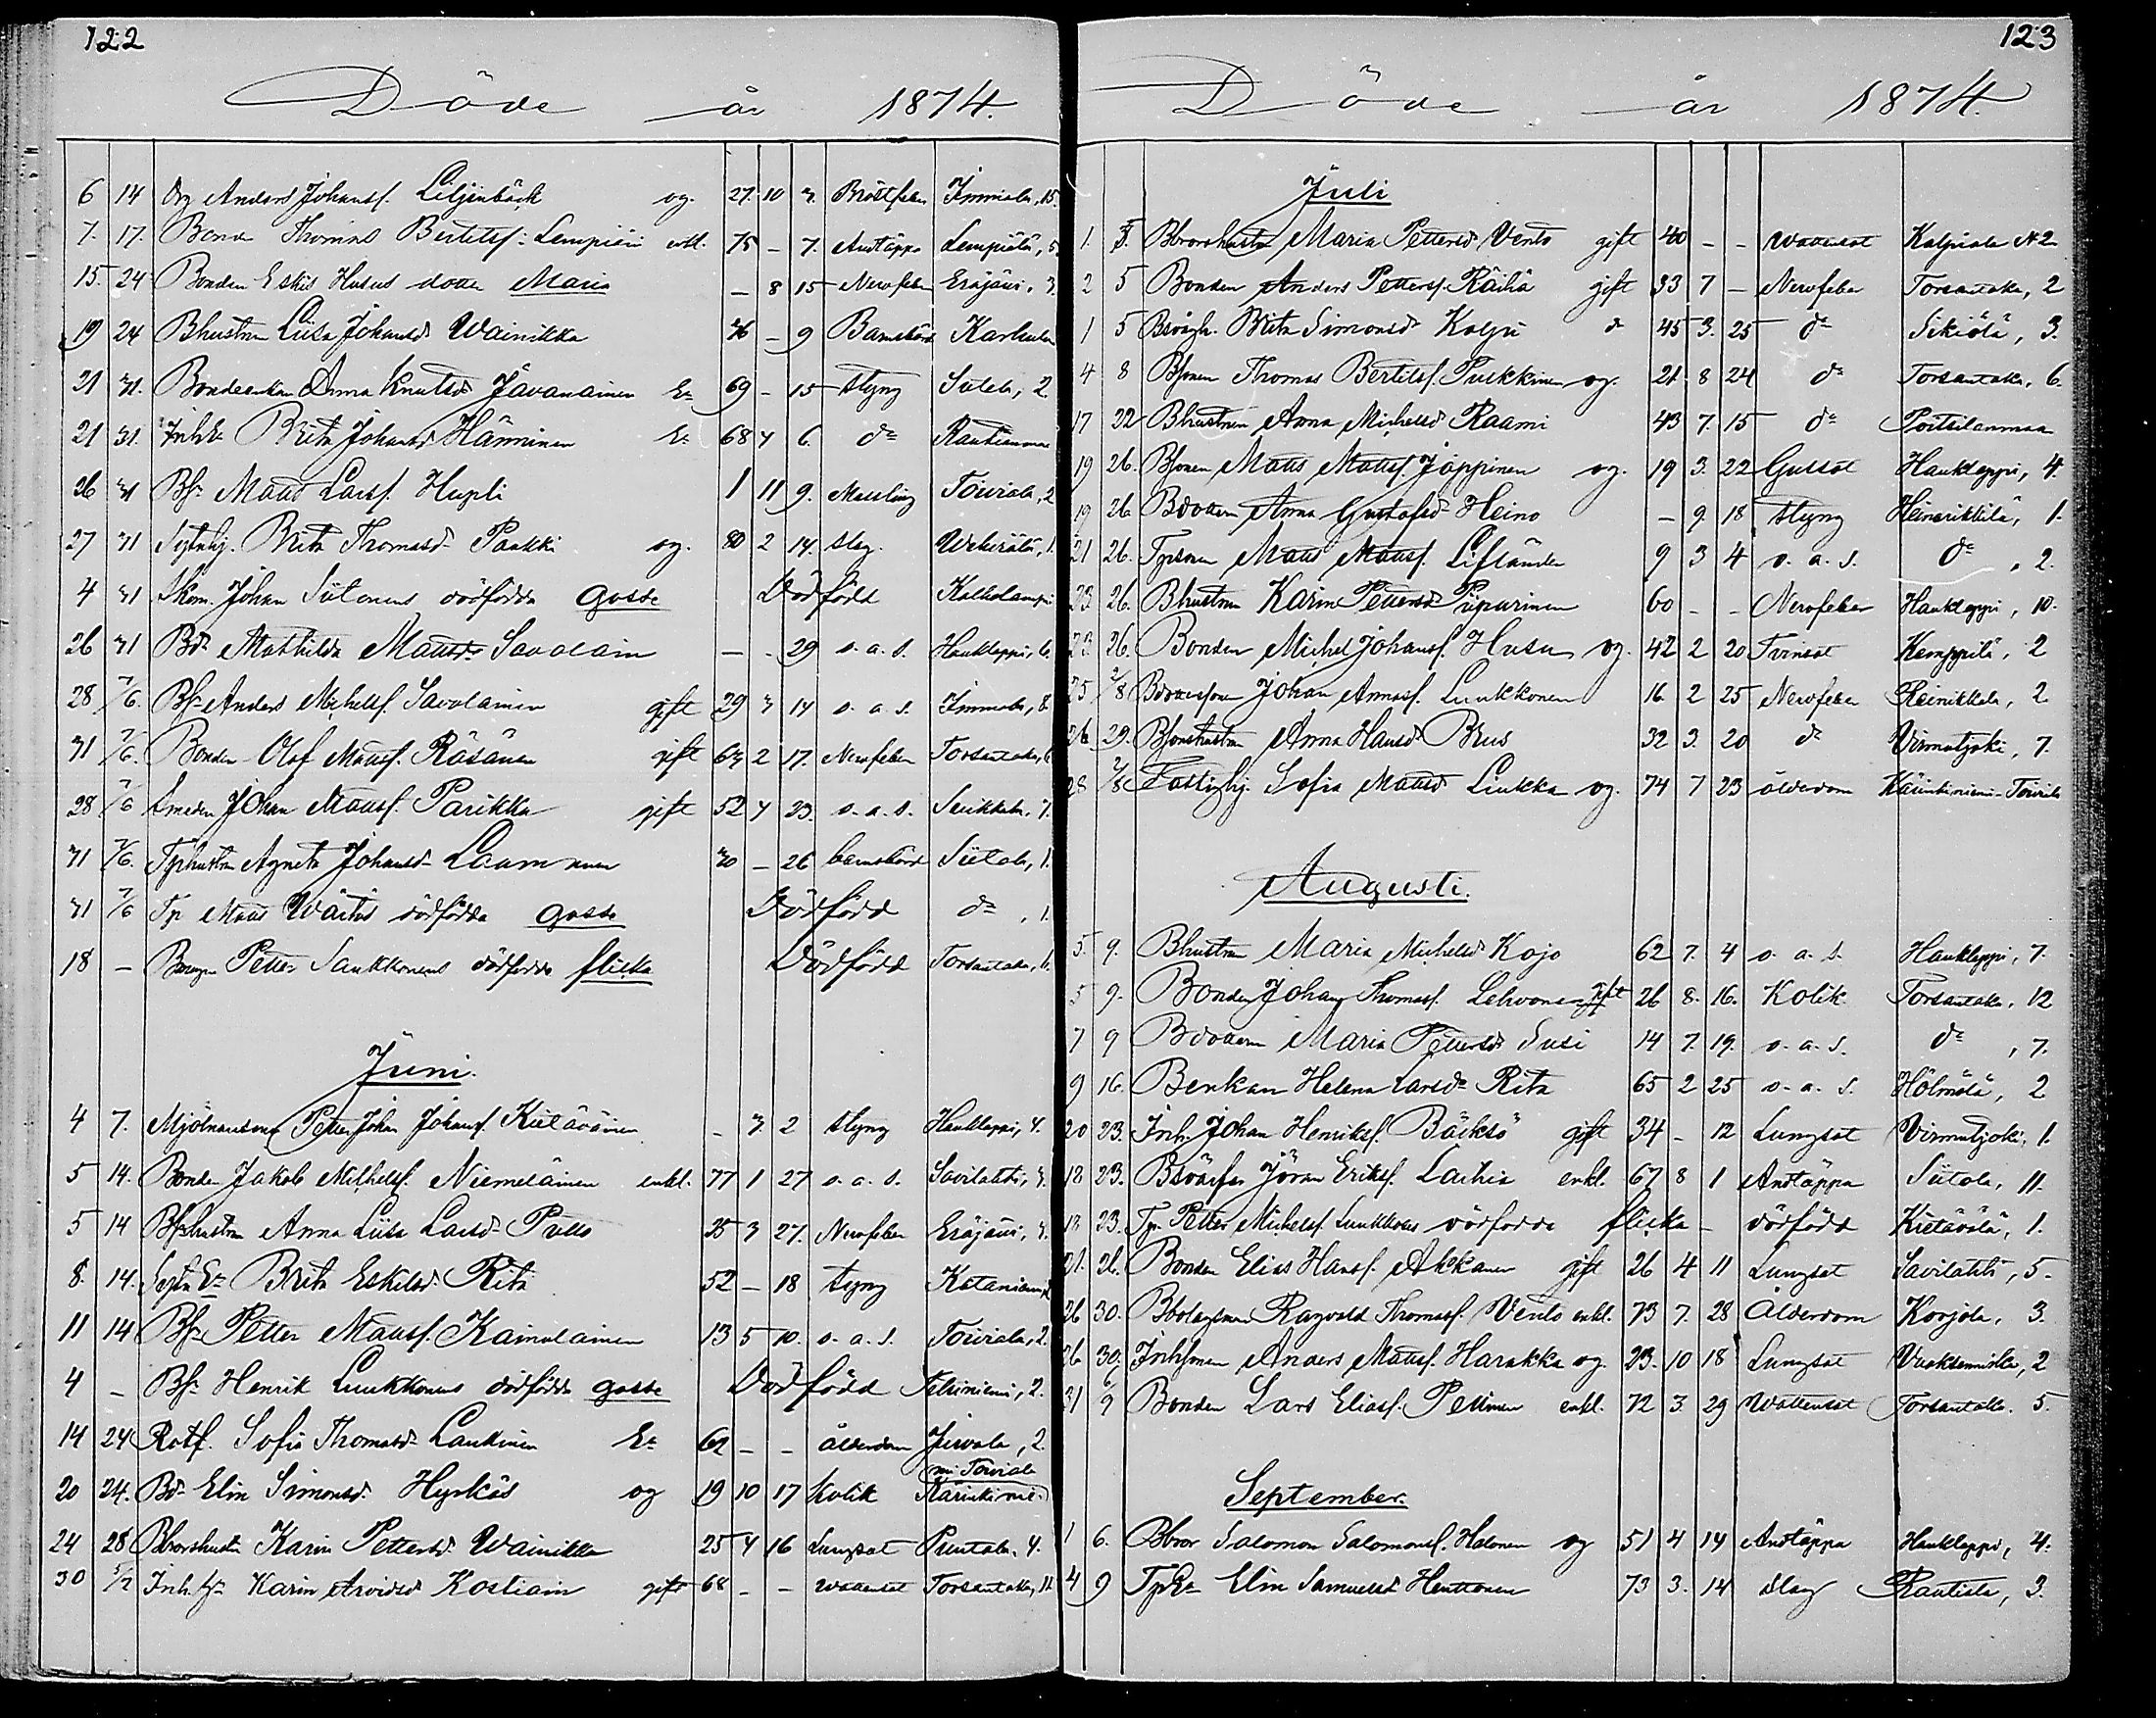 122
Döde år 1874.
6 14 Drg Anders Johansf. Liljenbäck og. 27 10 3. Bröstfeber Immiala, 15.
7. 17. Bonden Thomas Bertilsf. Lempiäin enkl. 75 - 7. Andtäppa Lempiälä, 5
15. 24 Bonden Eskils Husus dotter Maria - 8 15 Nervfeber Eräjärvi, 3.
19 24 Bhustrun Liisa Johansdr Wainikka 36 - 9 Barnsbörd Karhula
21 31. Bondeenkan Anna Knutsdr Javanainen Ea 69 - 15 Styng Siitola, 2.
21 31. InhEa Brita Johansdr Hänninen Ea 68 4 6. do Rautianmaa
26 31 Bs. Matts Larsf. Hupli 1 11 9. Messling Toiviala, 2
27 31 Sytnhj. Brita Thomasdr Paakki og. 80 2 14. slag.
4 31 Skom. Johan Siitonens dödfödda gosse Dödfödd Kalholampi
26 31 Bdr Mathilda Mattsdr Savolain - - 29 o. a. s. Hauklappi, 6.
28 7/6. Bs. Anders Michelsf. Savolainen gift 29 3 14 o. a. s. Immiala, 8.
31 7/6. Bonden Olof Mattsf. Räsänen gift 63 2 17. Nervfeber Torsantaka, 6
28 7/6 Smeden Johan Mattsf. Parikka gift 52 4 23. o. a. s. Seikkala, 7.
31 7/6. Tphustrun Agneta Johansdr Laamanen 30 - 26 barnsbörd Siitola, 1.
31 7/6 Tp Matts Wärtös dödfödda gosse Dödfödd do, 1.
18 - Petter Saukkonens dödfödda flicka Dödfödd Torsantaka, 6.
Juni.
4 7. Mjölnaresonen Petter Johan Johansf. Kietäväinen - 3. 2 Styng Hauklappi, 4.
5 14. Bonden Jakob Michelsf. Niemeläinen enkl. 77 1 27 o. a. s. Savilahti, 3.
5 14 Bshustrun Anna Liisa Larsdr Pullo 25 3 27. Nervfeber Eräjärvi, 3.
8. 14. Sytn Ea Brita Eskilsdr Rita 52 - 18 Styng Kataniemi
11 14 Bs. Petter Mattsf. Kainulainen 13 5 10. o. a. s. Toiviala, 2.
4 - Bs. Henrik Luukkonens dödfödda gosse Dödfödd, 2.
14 24 Rotf. Sofia Thomasdr Laukinen Ea 62 - - ålderdom, 2.
20 24. Bdr Elin Simonsdr Hyrkäs og 19 10 17 Kolik Kärinkinie-mi Toiviala
24 28 Bbrorshustr Karin Pettersdr Wainikka 25 4 16 Lungsot Puntala, 4.
30 5/7 Inh. Karin Arvidsdr Kostiain gift 68 - - Wattusot Torsantaka, 11.
123
Döde år 1874.
Juli
1. 5. Bbrorshustr Maria Pettersdr Vento gift 40 - - Wattusot Kolpiala N 2
2 5 Bonden Anders Pettersf. Räihä gift 33 7 - Nervfeber Torsantaka, 2
1 5 Bsvägh. Brita Simonsdr Kolpi do 45 3. 25 do Sikiölä, 3.
4 8 Bsonen Thomas Bertilsf. Pukkinen og. 21 8 24 do Torsantaka, 6.
17 22 Bhustrun Anna Michelsdr Raami 43 7. 15 do Poitsilanmaa
19 26. Bsonen Matts Mattsf. Jäppinen og. 19 3. 22 Gulsot Hauklappi, 4.
19 26 Bdottern Anna Gustafsdr Heino - 9. 18 Styng Heinrikkilä, 1.
21 26. Tpsonen Matts Mattsf. Lifländer 9 3 4 o. a. s. do, 2.
23 26. Bhustrun Karin Pettersdr Pipurinen 60 - - Nervfeber Hauklappi, 10.
23. 26. Bonden Michel Johansf. Husu og. 42 2 20 Tvinsot Kemppilä, 2
25 2/8 Bdottersonen Johan Annasf. Luukkonen 16 2 25 Nervfeber Reinikkala, 2
26 29. Bsonshustrun Anna Hansdr Brus 32 3. 20 do Virmutjoki, 7.
28 2/8 Fattighj. Sofia Mattsdr Liukka og. 74 7 23 ålderdom Kärinkiniemi-Toivila
Augusti.
5. 9. Bhustrun Maria Michelsdr Kojo 62 7. 4 o. a. s. Hauklappi, 7.
5 9. Bonden Johan Thomasf. Lehvonen gift 26 8. 16. Kolik Torsantaka, 12
7 9 Bdottern Maria Pettersdr Susi 14 7. 19. o. a. s. do, 7.
9 16. Benkan Helena Larsdr Rita 65 2 25 o. a. s. Hölmölä, 2
20 23. Inh. Johan Henriksf. Bäcksö gift 34 - 12 Lungsot Virmutjoki, 1.
18 23. Bsvärfar Jöran Eriksf. Laihia enkl. 67 8 1 Andtäppa Siitola, 11.
18 23. Tp. Petter Michelsf. Luukkons dödfödda flicka - dödfödd Kietävälä, 1.
21. 26. Bonden Elias Hansf. Akkanen gift 26 4 11 Lungsot Savilahti, 5.
26 30. Bbolagsman Ragvald Thomasf. Vento enkl. 73 7. 28 Ålderdom Korjola, 3.
26 30. Inhsonen Anders Mattsf. Harakka og. 23. 10 18 Lungsot Vuoksenniska, 2
31 6/9 Bonden Lars Eliasf. Pellinen enkl. 72 3. 29 Wattusot Torsantaka. 5.
September.
1 6. Bbror Salomon Salomonsf. Halonen og 51 4 14 Andtäppa Hauklappi, 4.
4 9 TpEa Elin Samuelsdr Henttonen 73 3. 14 slag Rautiala, 3.